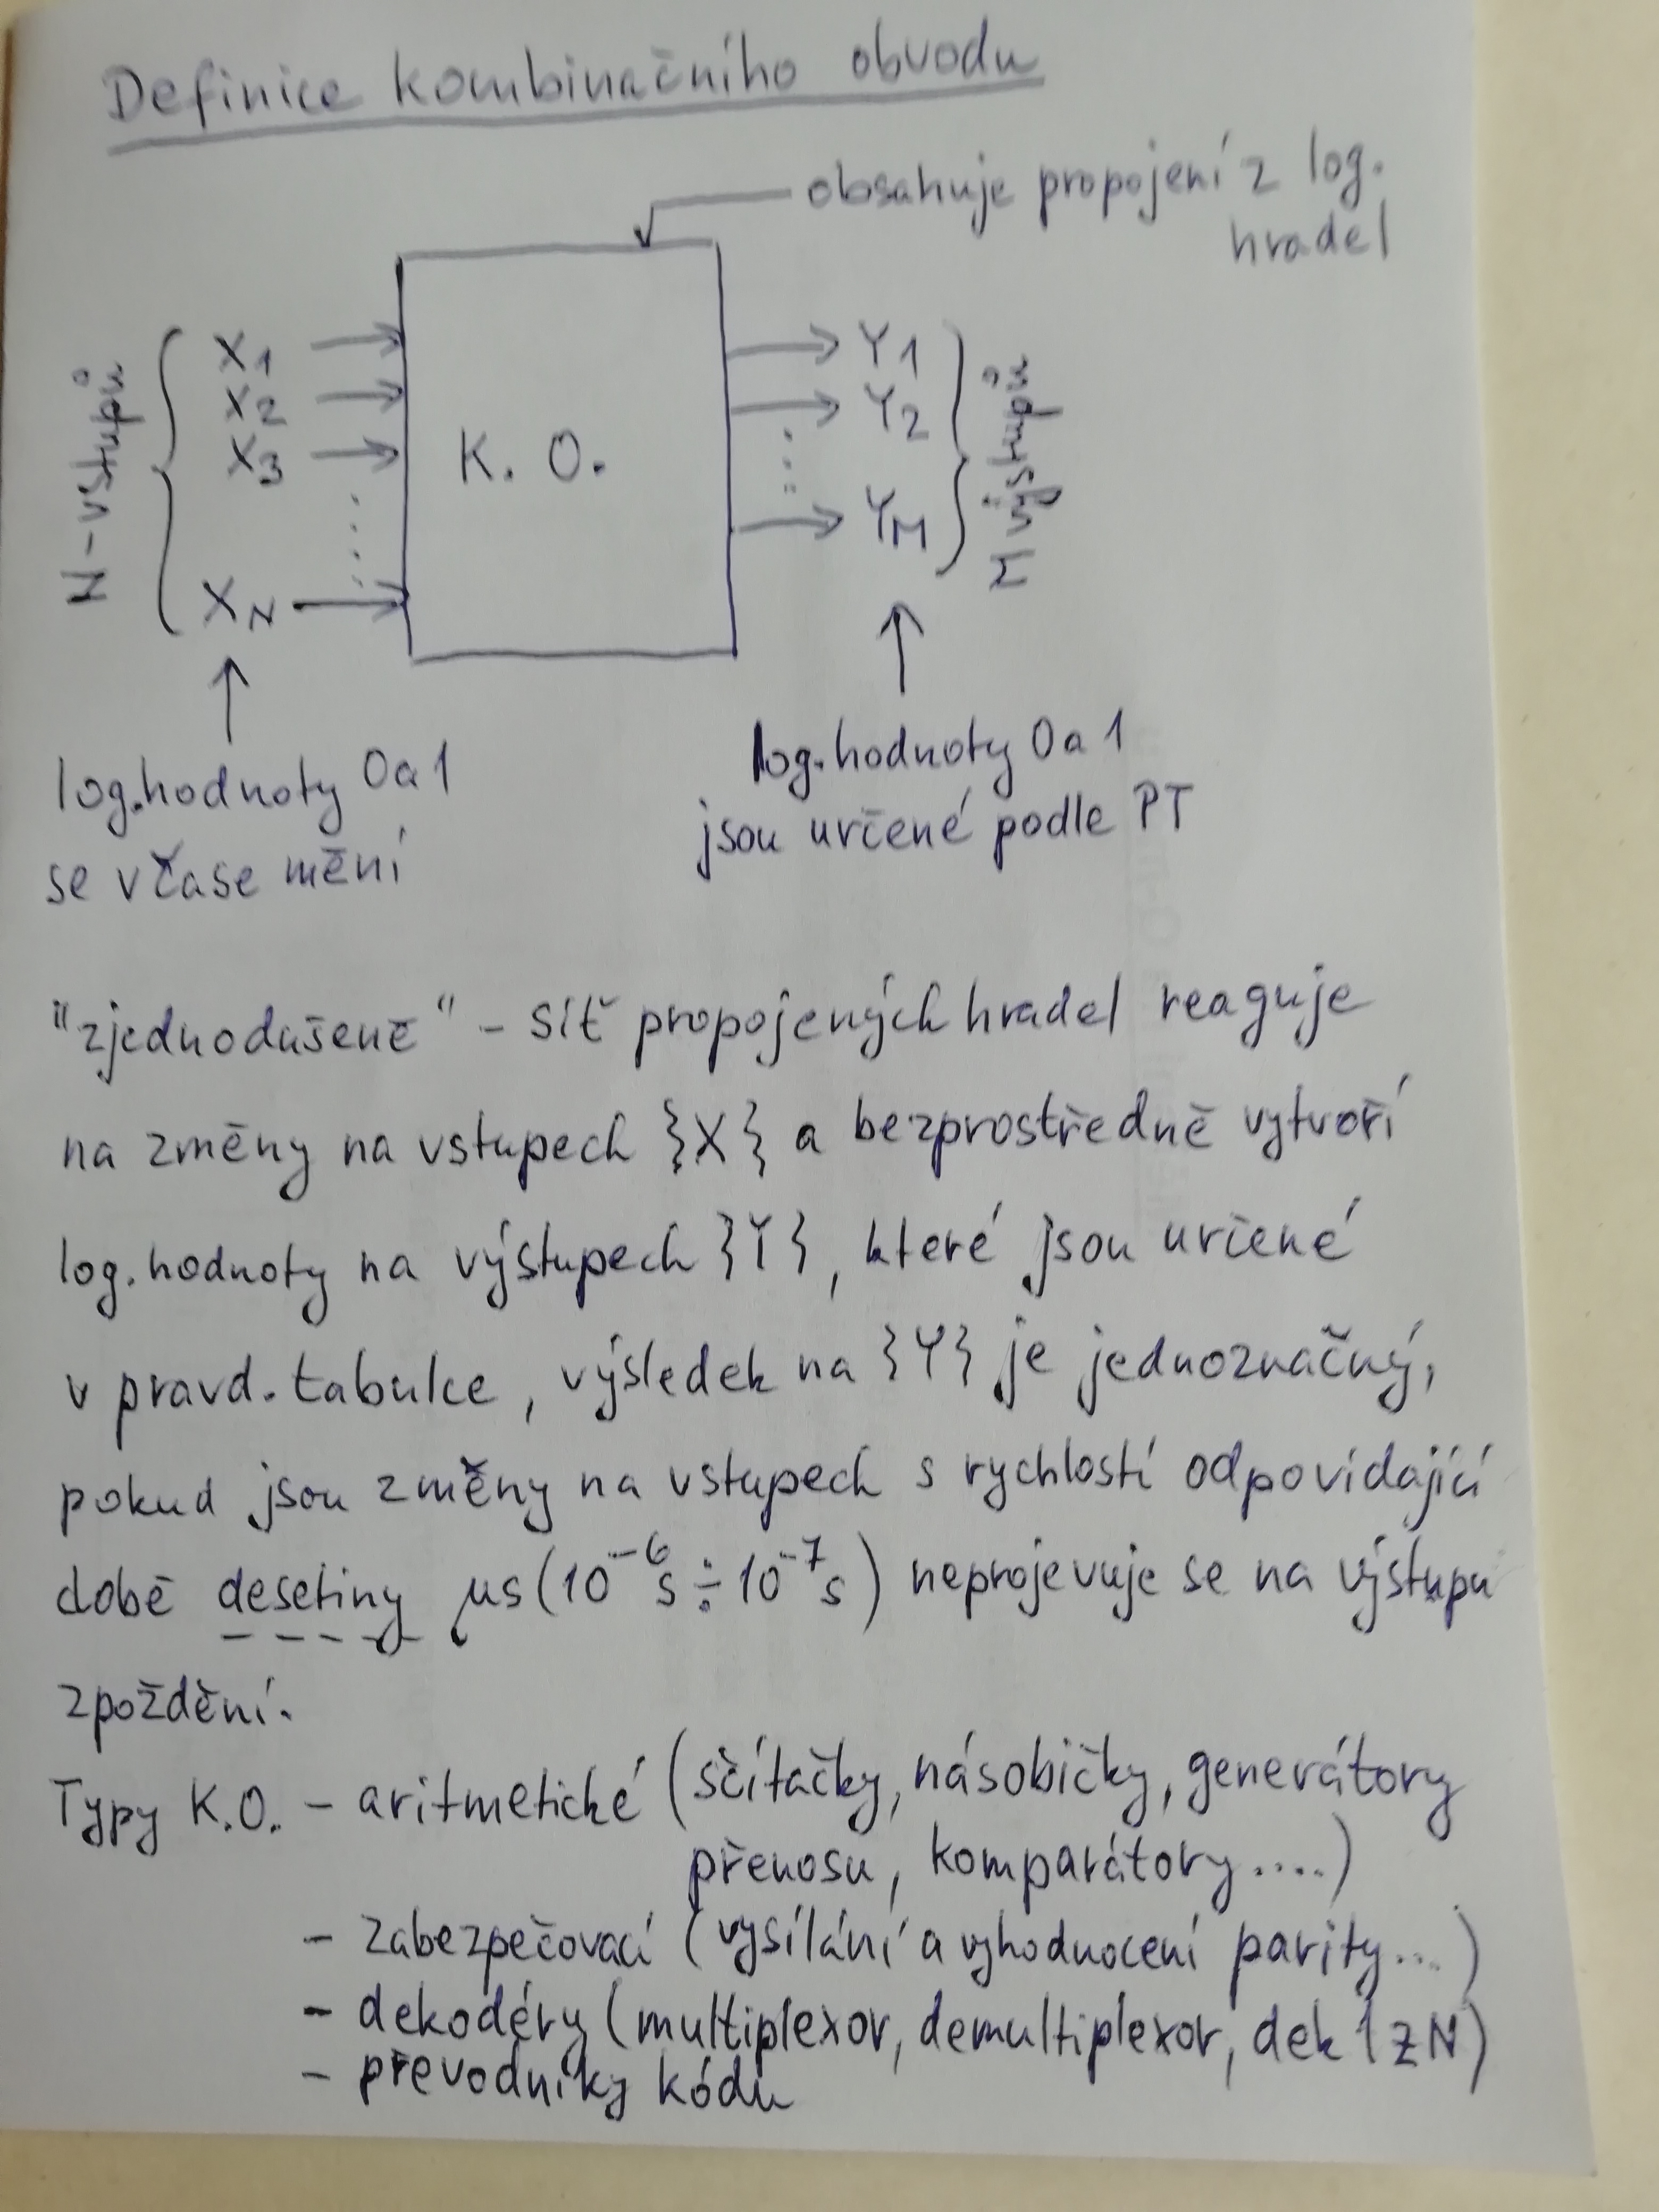 Definice kombinačního obvodu
obsahuje propojení z log.
hradel
N-vstupů
X1
X2
X3
XN
K. O.
Y1
Y2
YM
M výstupů
log.hodnoty 0 a 1
se v čase mění
log.hodnoty 0 a 1
jsou určené podle PT
"zjednodušeně" - síť propojených hradel reaguje
na změny na vstupech {X} a bezprostředně vytvoří
log.hodnoty na výstupech {Y}, které jsou určené
v pravd.tabulce, výsledek na {Y} je jednoznačný,
pokud jsou změny na vstupech s rychlostí odpovídající
době desetiny µs (10⁻⁶s ÷ 10⁻⁷s) neprojevuje se na výstupu
zpoždění.
Typy K.O. - aritmetické (sčítačky, násobičky, generátory
přenosu, komparátory....)
- zabezpečovací (vysílání a vyhodnocení parity...)
- dekodéry (multiplexor, demultiplexor, dek 1 z N)
- převodníky kódu